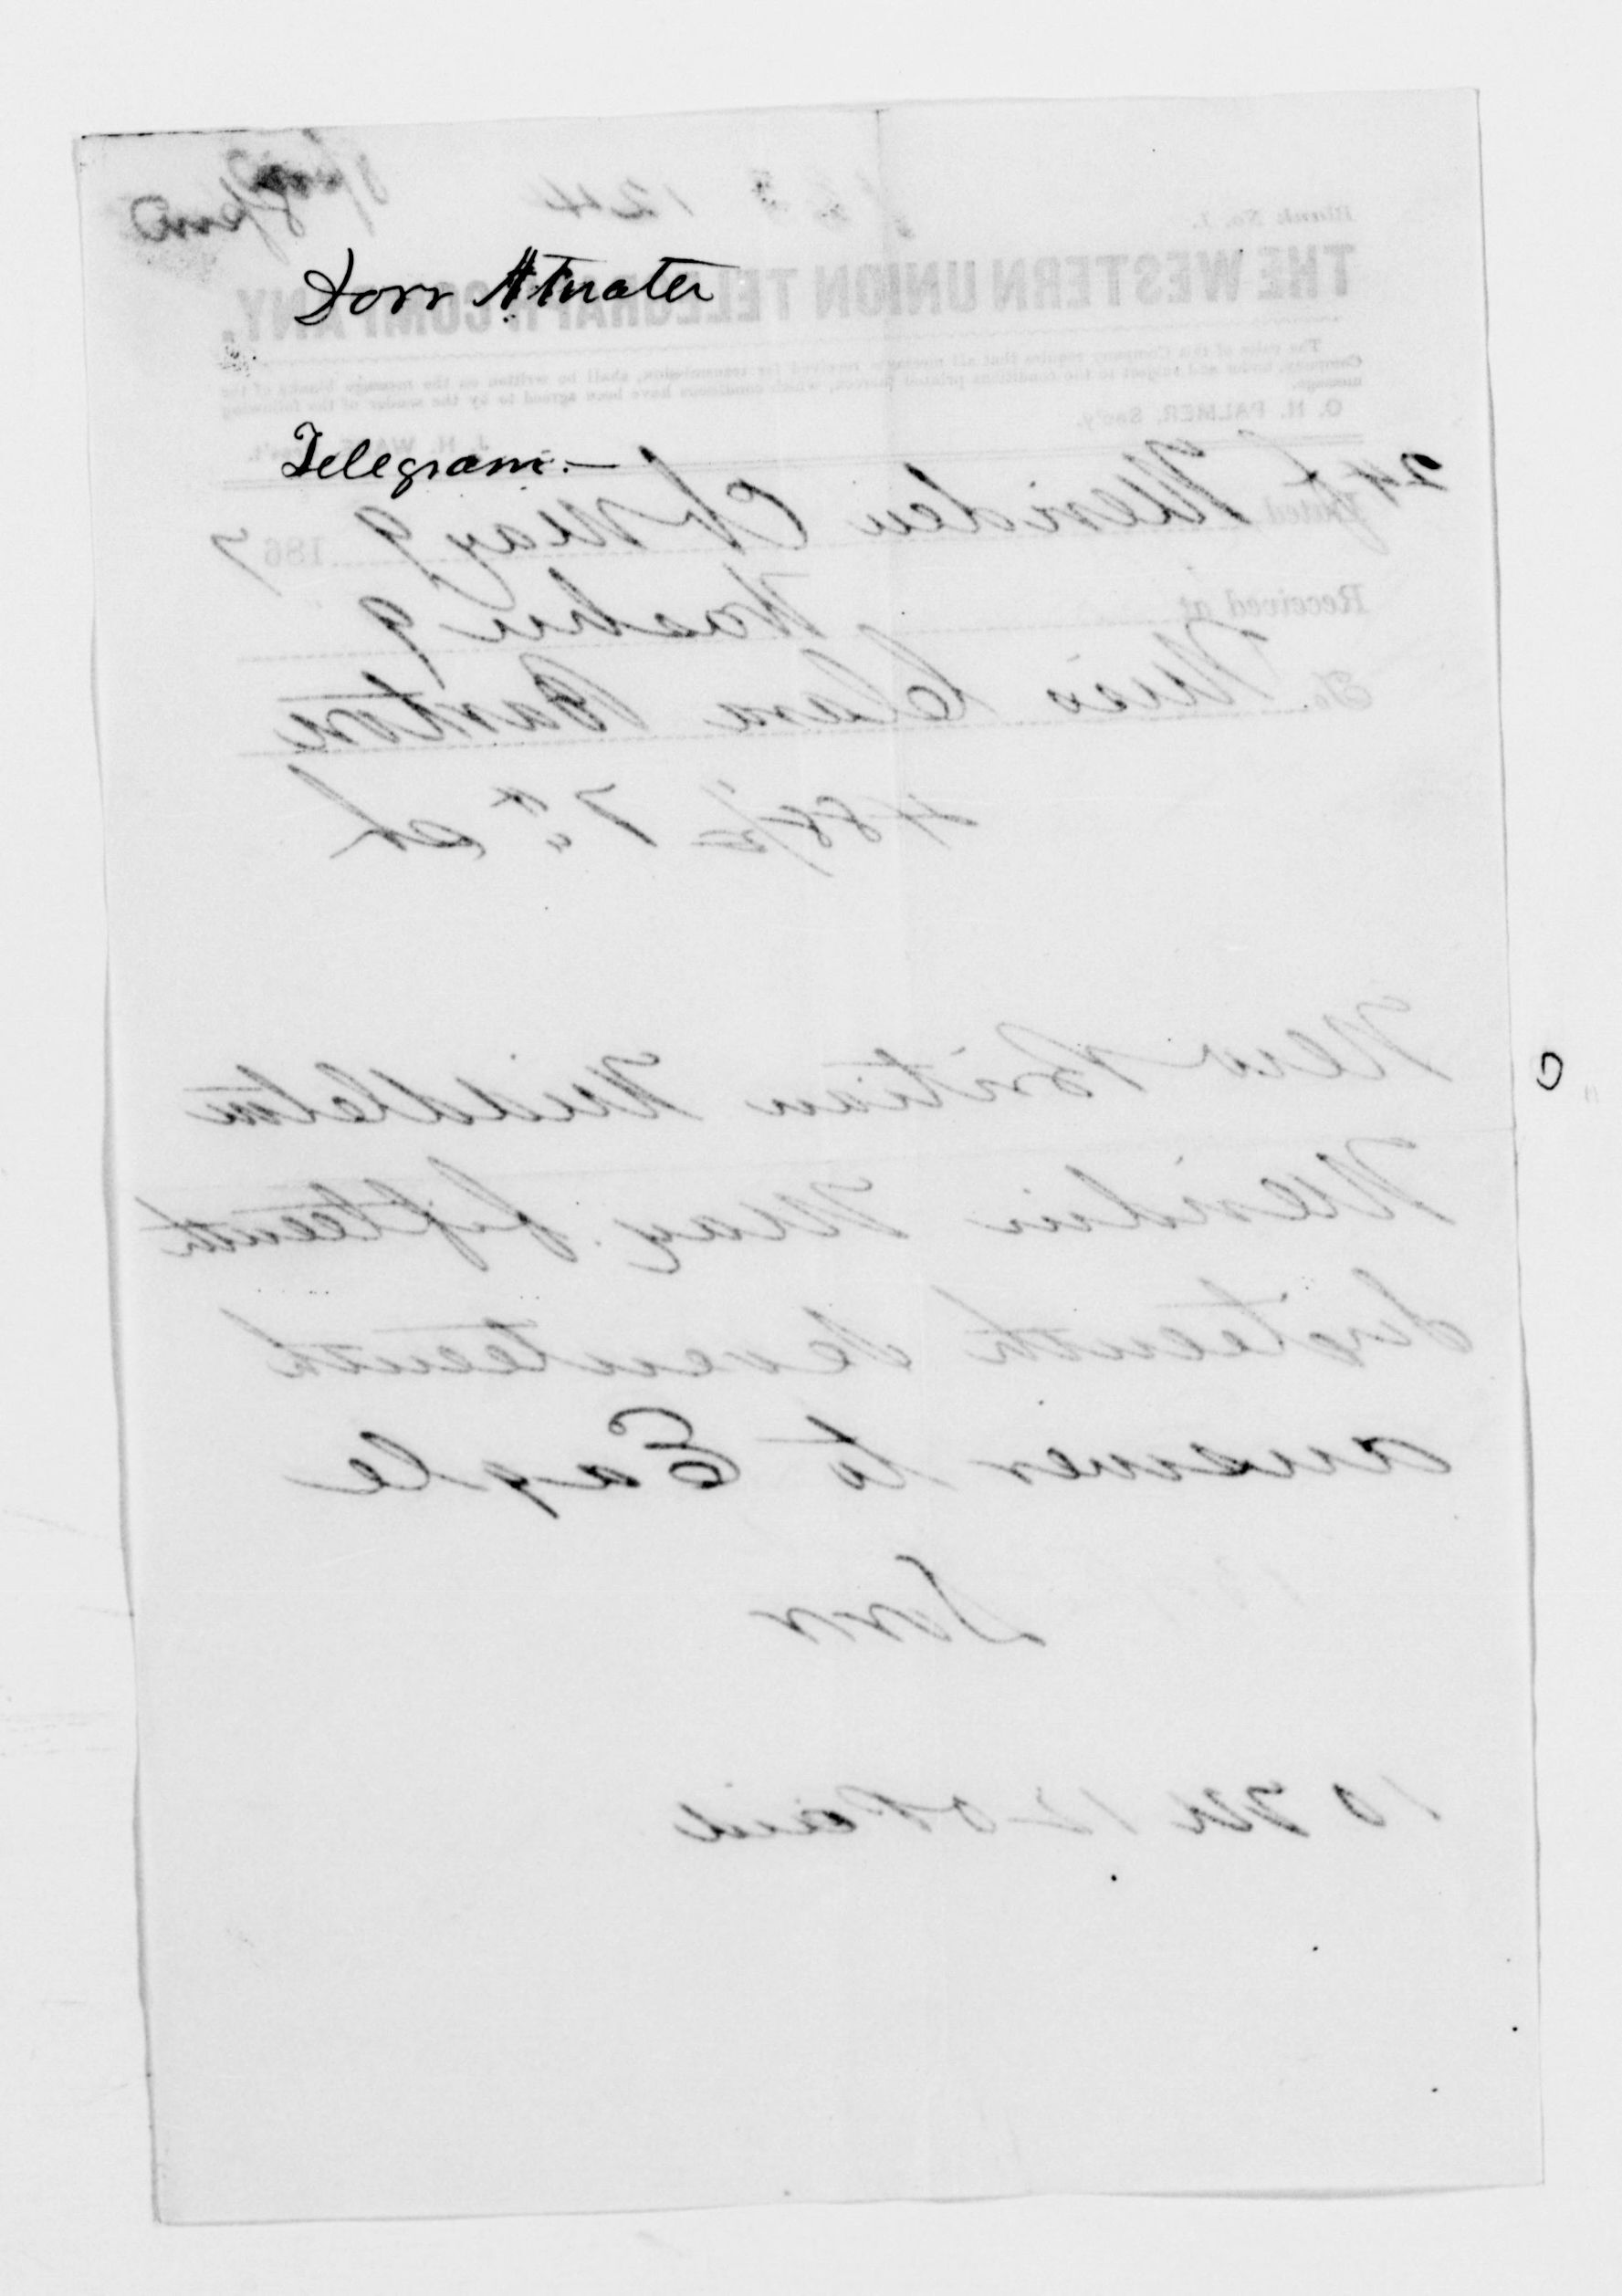 Dorr Atwater
Telegram.—
Blank No. 1.
124
THE WESTERN UNION TELEGRAPH COMPANY.
The rules of this Company require that all messages received for transmission, shall be written on the message blanks of the
Company, under and subject to the conditions printed thereon, which conditions have been agreed to by the sender of the following
message.
O. H. PALMER, Sec'y.
Dated Meriden Ct May 9 1867
Received at Washn 9
To Miss Clara Barton
488½ 7th st
New Britian Middletn
Meriden May fifteenth
Sixteenth Seventeenth
answer to Eagle
Dorr
10 Paid